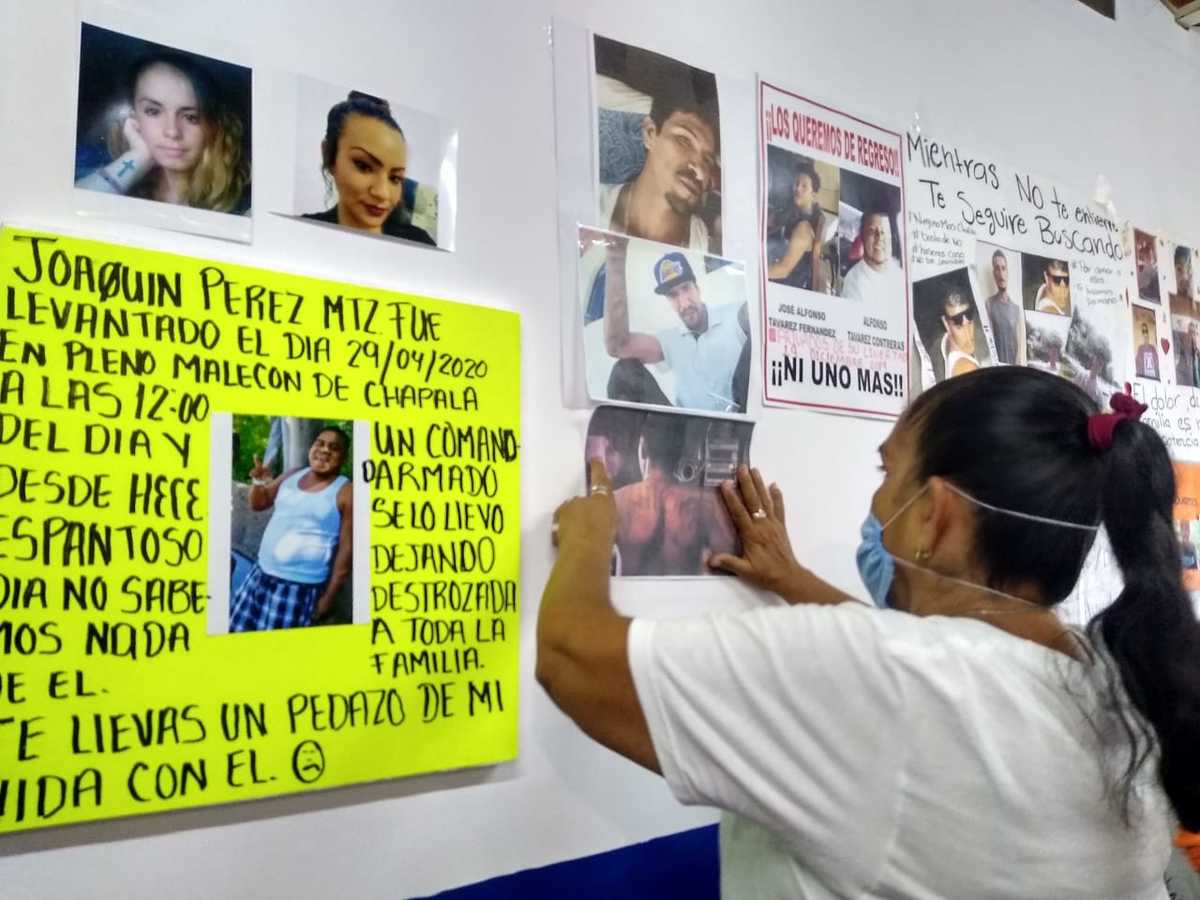 JOAQUIN PEREZ MTZ. FUE
LEVANTADO EL DIA 29/04/2020
EN PLENO MALECON DE CHAPALA
A LAS 12:00
DEL DIA Y
DESDE HECE
ESPANTOSO
DIA NO SABE-
MOS NADA
DE EL.
UN COMAND-
DARMADO
SELO LLEVO
DEJANDO
DESTROZADA
A TODA LA
FAMILIA.
TE LLEVAS UN PEDAZO DE MI
VIDA CON EL.
¡¡LOS QUEREMOS DE REGRESO!!
JOSE ALFONSO
TAVAREZ FERNANDEZ
ALFONSO
TAVAREZ CONTRERAS
¡¡NI UNO MAS!!
Mientras No te entierre
Te Seguire Buscando
El dolor, de